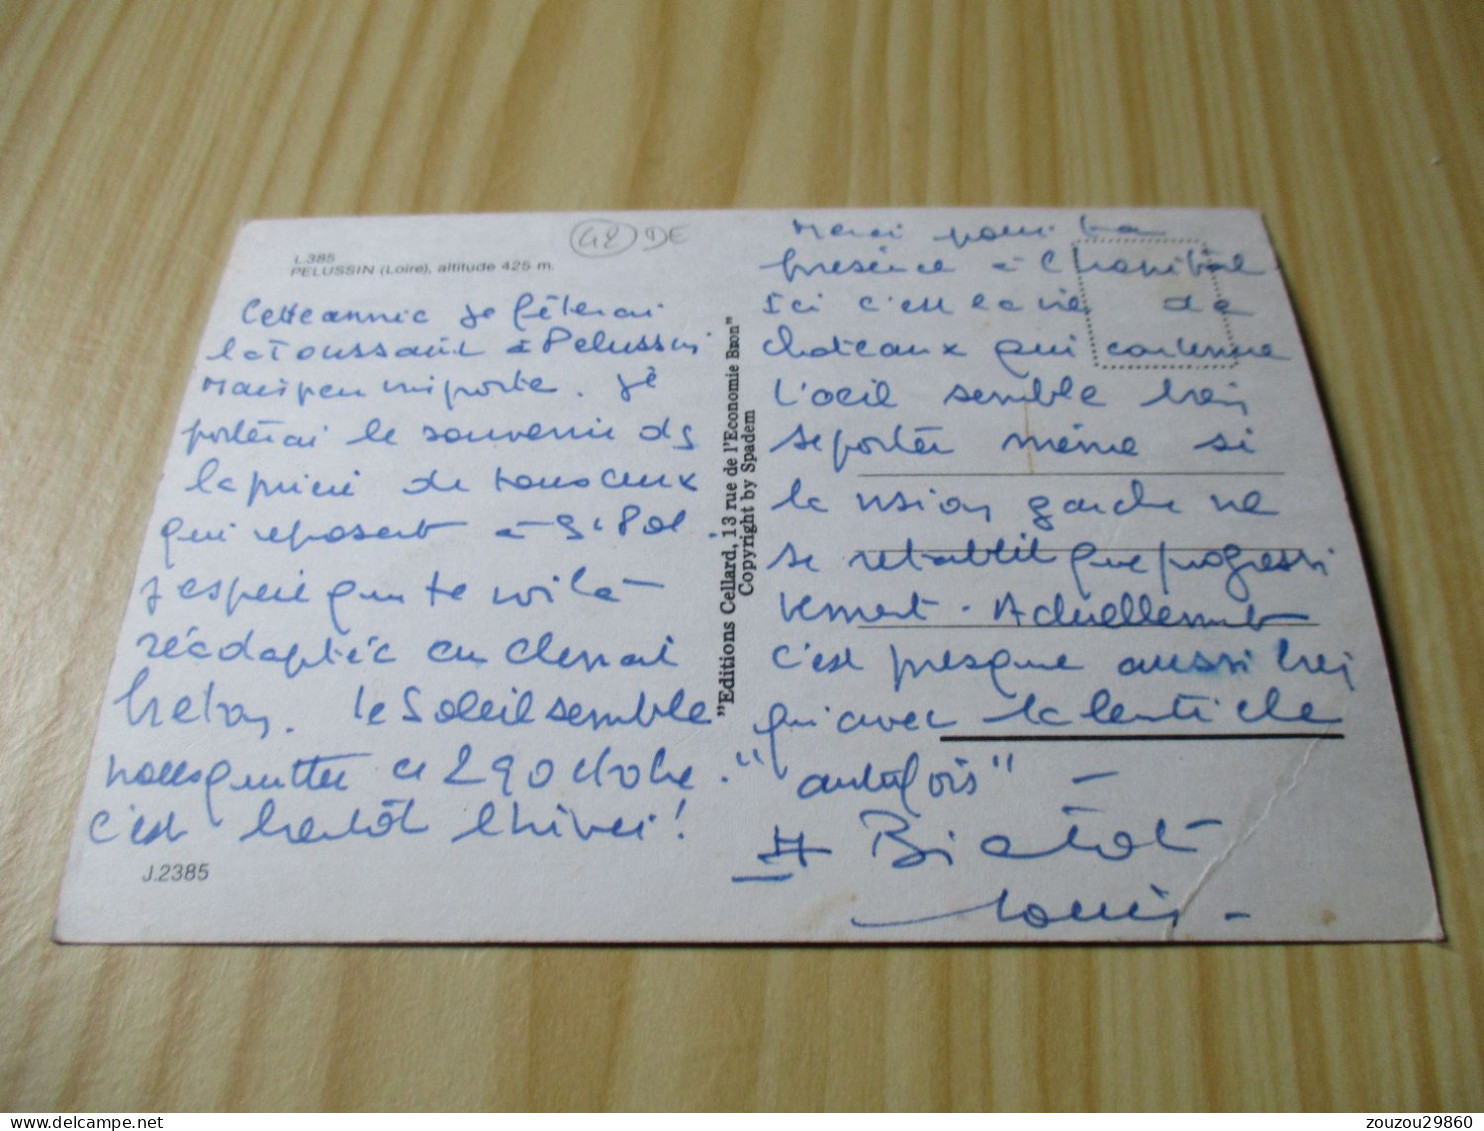 42 DE
L.385
PELUSSIN (Loire), altitude 425 m.
Cette année je fêterai
la Toussaint à Pelussin
mais peu importe. Je
porterai le souvenir ds
la prière de tous ceux
qui reposent à St Pol.
J'espère que te voilà
réadaptée au climat
breton. Le Soleil semble
nous quitter ce 29 octobre.
c'est bientôt l'hiver!
J.2385
"Editions Cellard, 13 rue de l'Economie Bron"
Copyright by Spadem
Merci pour ta
présence à l'hôpital
Ici c'est la vie de
chateaux qui continue
L'oeil semble bien
se porter même si
la vision gauche ne
se rétablit que progressi
vement. Actuellement
c'est presque aussi bien
qu'avec la lentille
"autrefois" -
A Biatôt
Louis -
zouzou29860